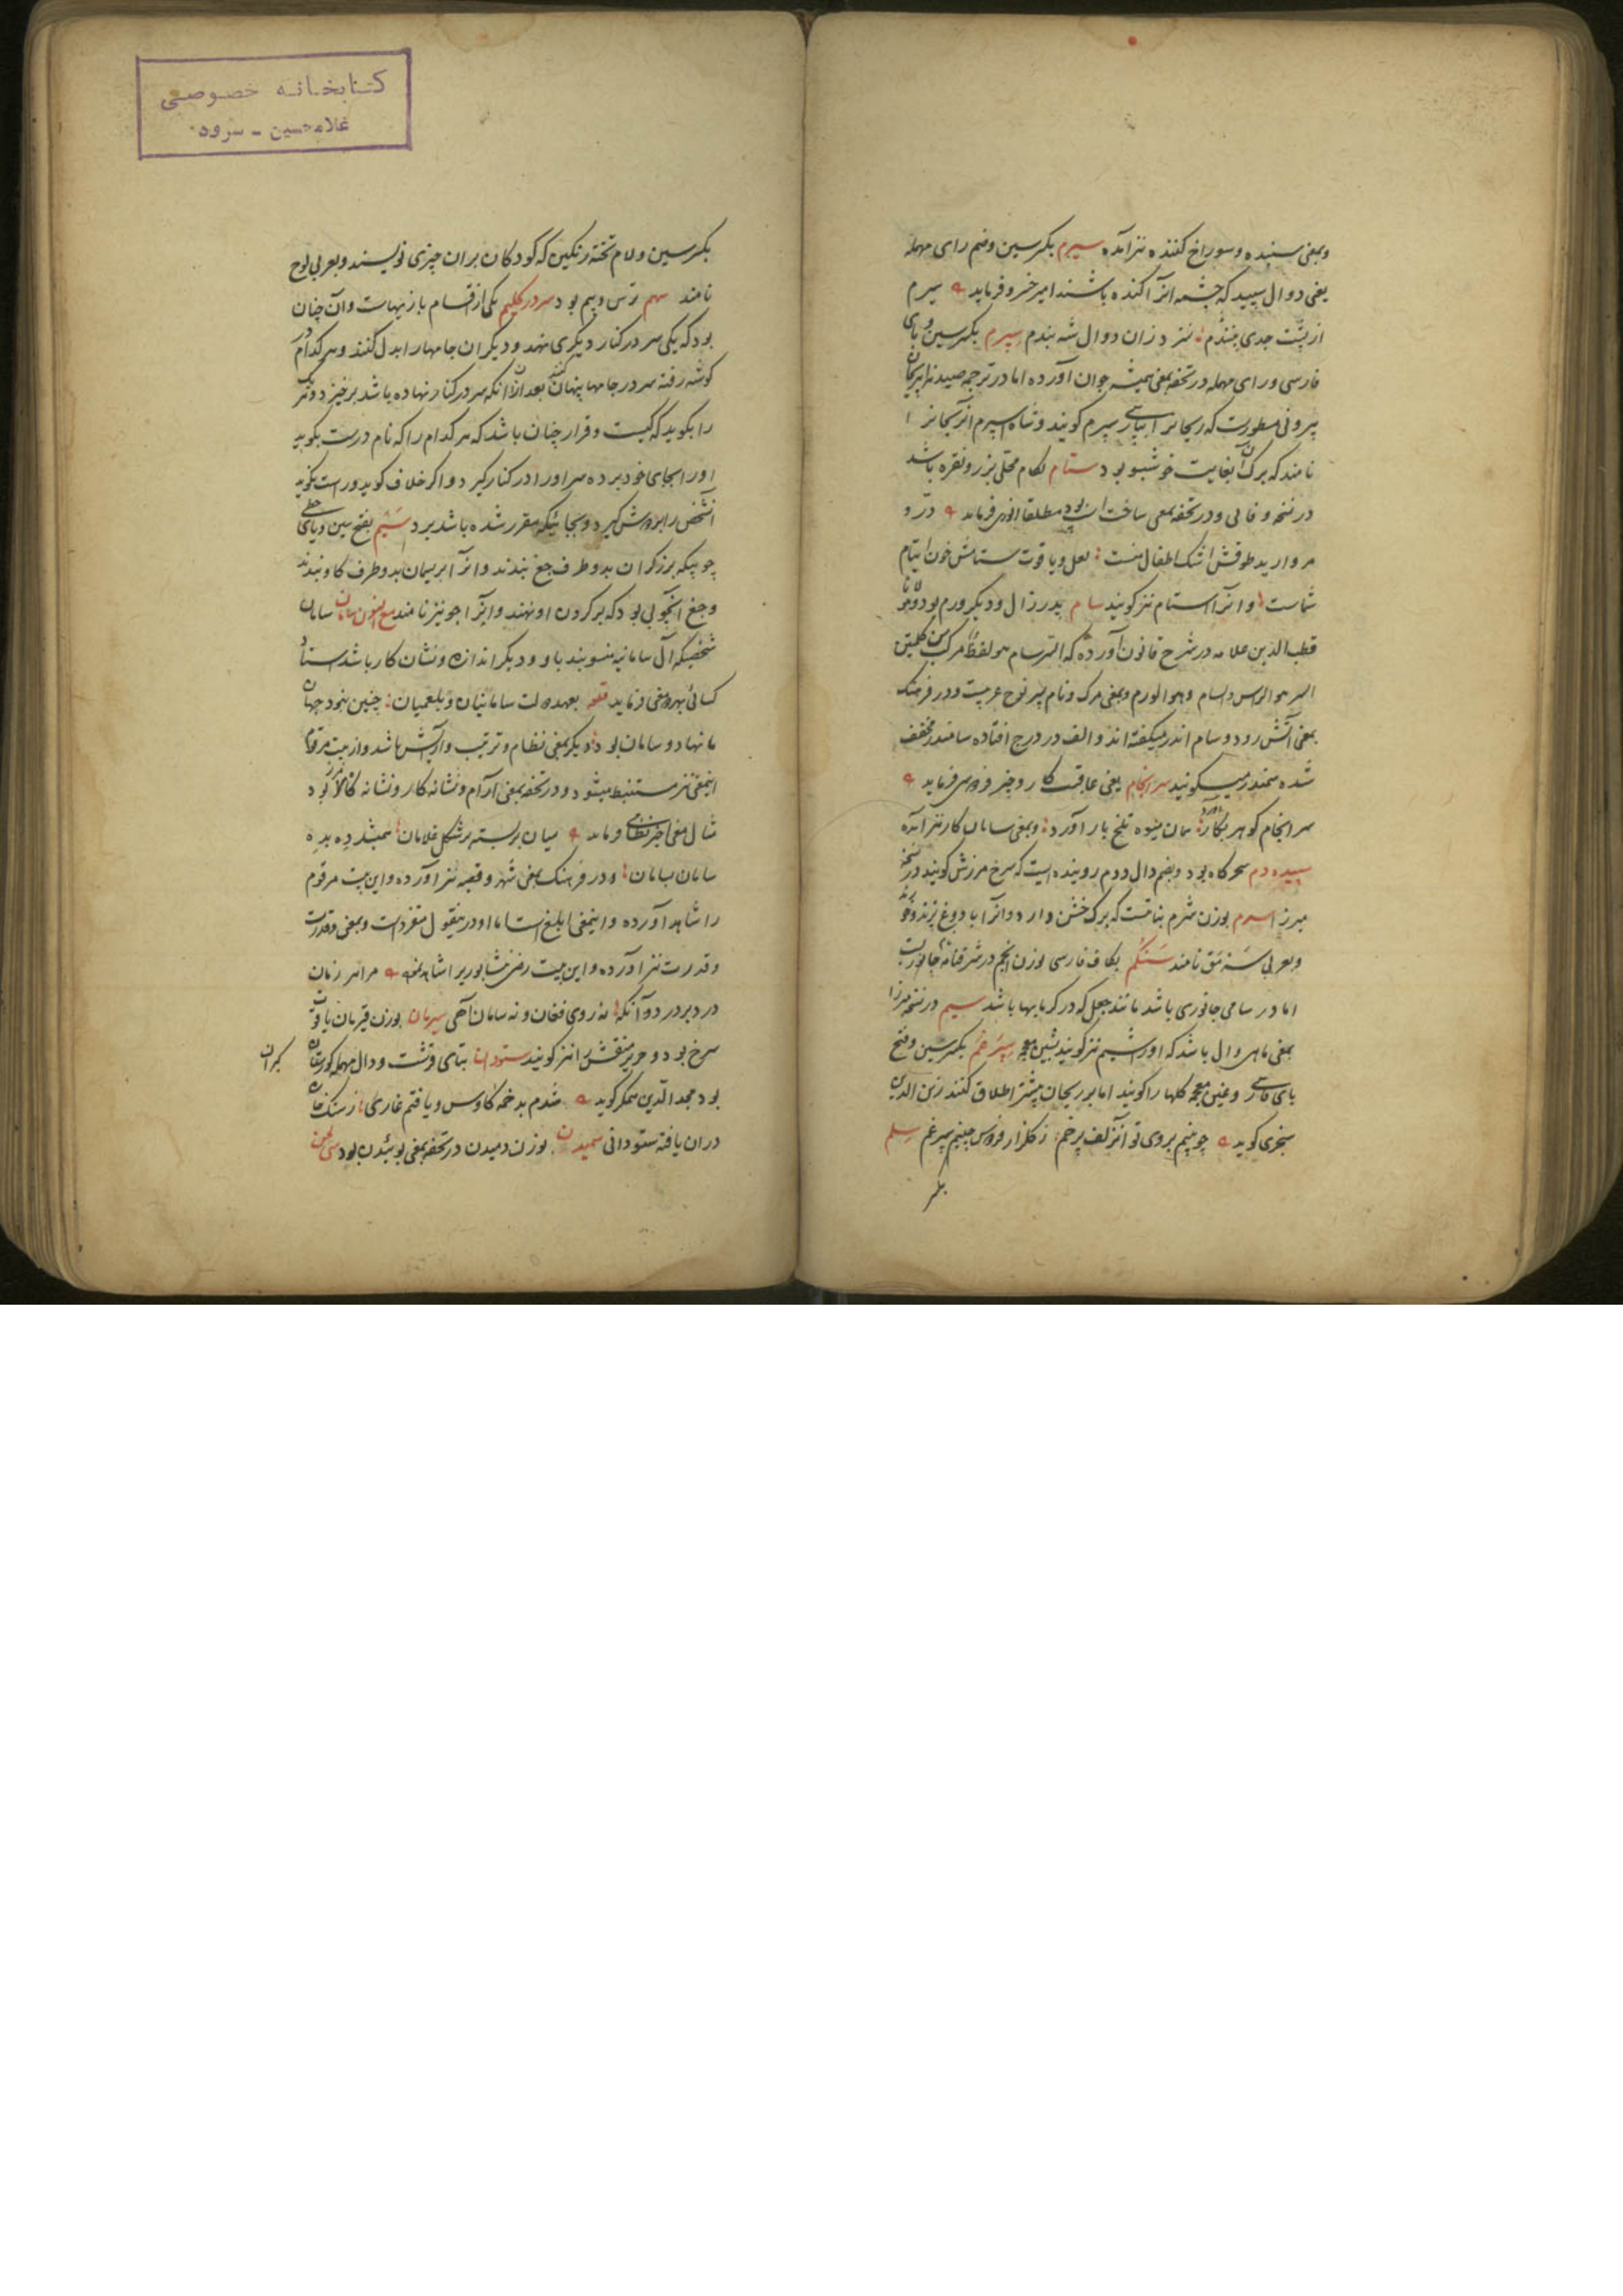 وبمعنی سنبنده وسوراخ کننده نیز آمده سیرم بکسر سین وضم رای مهمله
یعنی دوال سپید که چشمه آنرا کنده باشند امیر خسرو فرماید سیرم
از پشت جدی بندم نیز دزان دوال شه بندم سپرم بکسر سین و بای
فارسی ورای مهمله در تحفه بمعنی همیشه جوان آورده اما در ترجمه صیدنه ابوریحان
بیرونی مسطورست که ریحانرا بپارسی سپرم گویند و شاه اسپرم
نامند که برگ آن بغایت خوشبو بود ستام لگام محلی بزر ونقره باشد
در نسخه وفائی ودر تحفه بمعنی ساخت اسپ بود مطلقا انوری فرماید در و
مروارید طوقش اشک اطفال منست لعل ویاقوت ستامش خون ایتام
شماست وآنرا استام نیز گویند سام پدر زال ودیگر ورم بود
قطب الدین علامه در شرح قانون آورده که السرسام هو لفظ مرکب من کلمتین
السر هو الراس والسام وهو الورم وبمعنی مرگ ونام پسر نوح عربیست ودر فرهنگ
بمعنی آتش رود وسام اندر میگفته اند والف در درج افتاده سامندر مخفف
شده سمندر میگویند سرانجام یعنی عاقبت کار وچیز فردوسی فرماید
سرانجام گوهر بکار آورد همان میوه تلخ بار آورد وبمعنی سامان کار نیز آمده
سپیده دم سحرگاه بود وبضم دال دوم روینده ایست که سرخ مرزش گویند در نسخه
میرزا سرم بوزن شرم بناتیست که برگ خشن دارد وآنرا با دوغ پزند وخورند
وبعربی نامند سنگم بکاف فارسی بوزن انجم در شرفنامه جانوریست
اما در سامی جانوری باشد مانند جعل که در گرمابها باشد سیم در نسخه میرزا
بمعنی ماهی وال باشد که اورا شیم نیز گویند بشین معجمه سپرغم بکسر سین وفتح
بای فارسی وغین معجمه گلها را گویند اما بر ریحان بیشتر اطلاق کنند زین الدین
سنجری گوید چو بینم بروی تو آنزلف پرخم ز گلزار فردوس چینم سپرغم سلم
بکسر
کتابخانه خصوصی
غلامحسین - سرود
بکسر سین ولام تخته رنگین که کودکان بران چیزی نویسند وبعربی لوح
نامند سهم ترس وبیم بود سر در گلیم یکی از اقسام بازیهاست وآن چنان
بود که یکی سر در کنار دیگری نهد ودیگران جامها را بدل کنند وهر کدام در
گوشه رفته سر در جامها پنهان کنند بعد ازان آنکه سر در کنار نهاده باشد برخیزد ویک
را بگوید که کیست وقرار چنان باشد که هر کدام را که نام درست بگوید
اورا بجای خود برده سر اورا در کنار گیرد واگر خلاف گوید وراست نگوید
آنشخص را بر دوش گیرد وبجائیکه مقرر شده باشد برد سیم بفتح سین ویای حطی
چوبیکه برزگران بدو طرف جغ بندند وآنرا بریسمان بدو طرف گاو بندند
وجغ آنچوبی بود که بر گردن او نهند وآنرا جو نیز نامند مع النون سامان سامان
شخصیکه آل سامانیه منسوبند باو ودیگر اندازه ونشان کار باشد استاد
کسائی بهر دو معنی فرماید قطعه بعهد دولت سامانیان وبلعمیان چنین نبود جهان
با نهاد وسامان بود دیگر بمعنی نظام وترتیب وآرایش باشد واز بیت مرقوم
اینمعنی نیز مستنبط میشود ودر تحفه بمعنی آرام ونشانه کار ونشانه کالا نیز بود
مثال معنی اخیر نظامی فرماید میان بربسته بر شکل غلامان همیشد ده بده
سامان بسامان ودر فرهنگ بمعنی شهر وقصبه نیز آورده واین بیت مرقوم
را شاهد آورده واینمعنی ابلغ است اما او در ینقول متفردست وبمعنی وقدرت
وقدرت نیز آورده واین بیت رضی نشابوریرا شاهد نموده مرا سر زمان
درد بر درد وآنگه نه روی فغان ونه سامان آهی سیرمان بوزن قیرمان یاقوت
سرخ بود وحریر منقش را نیز گویند ستودان بتای قرشت ودال مهمله گورستان
گبران
بود مجد الدین همگر گوید شدم بدخمه کاوس ویافتم غاری ز سنگ خاره
دران یافته ستودانی سمیدن بوزن دمیدن در تحفه بمعنی بوئیدن بود